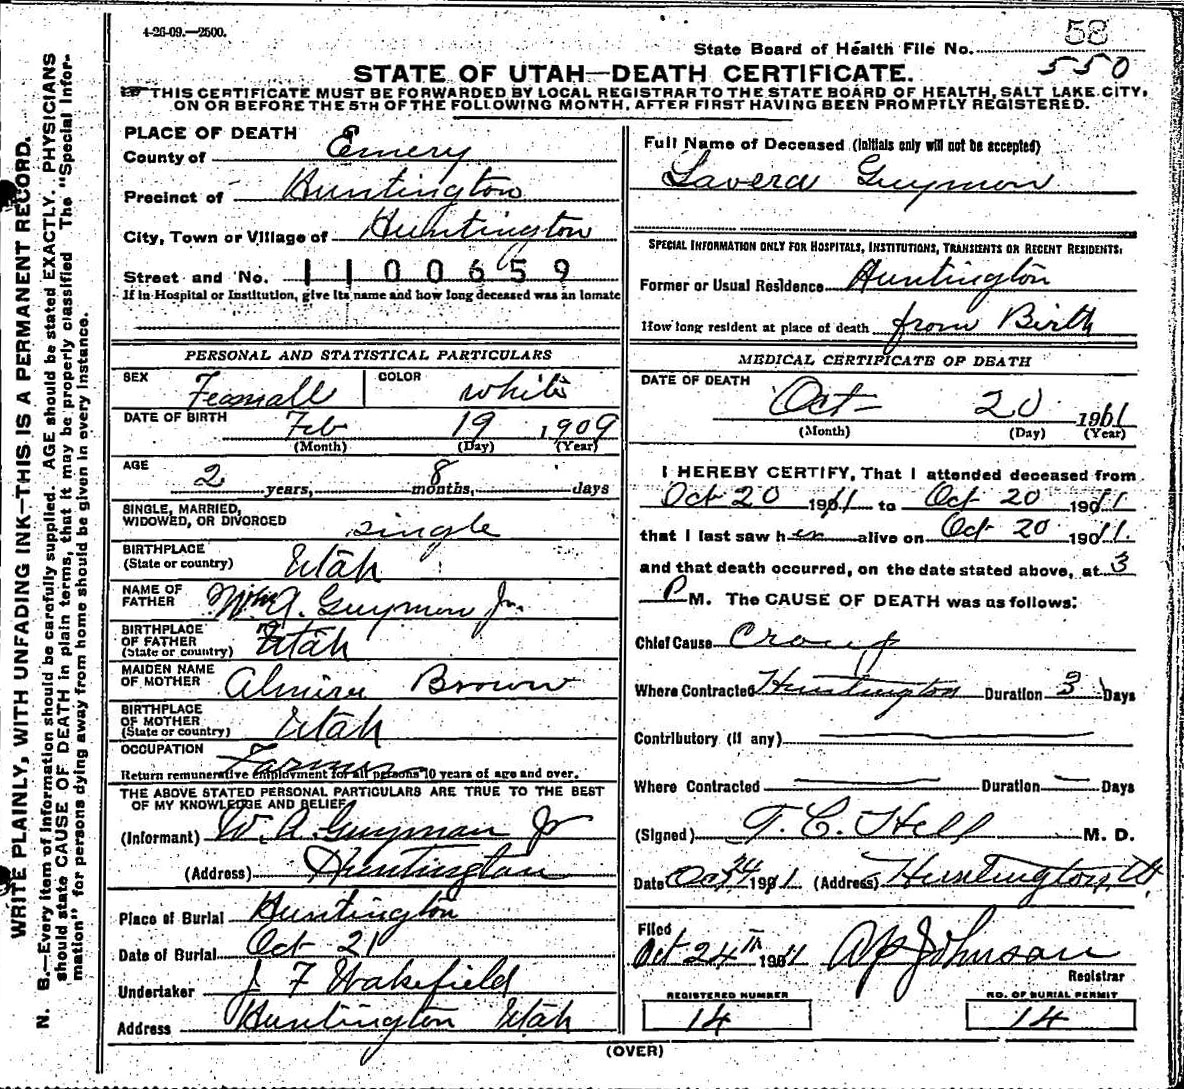 4-26-09.—2500.
State Board of Health File No. 58
550
STATE OF UTAH—DEATH CERTIFICATE.
THIS CERTIFICATE MUST BE FORWARDED BY LOCAL REGISTRAR TO THE STATE BOARD OF HEALTH, SALT LAKE CITY,
ON OR BEFORE THE 5TH OF THE FOLLOWING MONTH, AFTER FIRST HAVING BEEN PROMPTLY REGISTERED.
WRITE PLAINLY, WITH UNFADING INK—THIS IS A PERMANENT RECORD.
N. B.—Every item of information should be carefully supplied. AGE should be stated EXACTLY. PHYSICIANS
should state CAUSE OF DEATH in plain terms, that it may be properly classified. The "Special Infor-
mation" for persons dying away from home should be given in every instance.
PLACE OF DEATH
County of Emery
Precinct of Huntington
City, Town or Village of Huntington
Street and No. 1100659
If in Hospital or Institution, give its name and how long deceased was an inmate
PERSONAL AND STATISTICAL PARTICULARS
SEX Femalle COLOR white
DATE OF BIRTH Feb 19 1909
(Month) (Day) (Year)
AGE
2 years, 8 months, days
SINGLE, MARRIED,
WIDOWED, OR DIVORCED single
BIRTHPLACE
(State or country) Utah
NAME OF
FATHER Wm A. Guymon Jr.
BIRTHPLACE
OF FATHER
(State or country) Utah
MAIDEN NAME
OF MOTHER Almira Brown
BIRTHPLACE
OF MOTHER
(State or country) Utah
OCCUPATION Farmer
Return remunerative employment for all persons 10 years of age and over.
THE ABOVE STATED PERSONAL PARTICULARS ARE TRUE TO THE BEST
OF MY KNOWLEDGE AND BELIEF
(Informant) W. A. Guymon Jr
(Address) Huntington
Place of Burial Huntington
Date of Burial Oct 21
Undertaker J F Wakefield
Address Huntington Utah
Full Name of Deceased (Initials only will not be accepted)
Lavera Guymon
SPECIAL INFORMATION ONLY FOR HOSPITALS, INSTITUTIONS, TRANSIENTS OR RECENT RESIDENTS.
Former or Usual Residence Huntington
How long resident at place of death from Birth
MEDICAL CERTIFICATE OF DEATH
DATE OF DEATH
Oct 20 1911
(Month) (Day) (Year)
I HEREBY CERTIFY, That I attended deceased from
Oct 20 1911 to Oct 20 1911
that I last saw her alive on Oct 20 1911.
and that death occurred, on the date stated above, at 3
P M. The CAUSE OF DEATH was as follows:
Chief Cause Croup
Where Contracted Huntington Duration 3 Days
Contributory (if any)
Where Contracted Duration Days
(Signed) T. C. Hill M. D.
Date Oct 24 1911 (Address) Huntington, Ut
Filed
Oct 24TH 1911 Johnson
Registrar
REGISTERED NUMBER
14
NO. OF BURIAL PERMIT
14
(OVER)